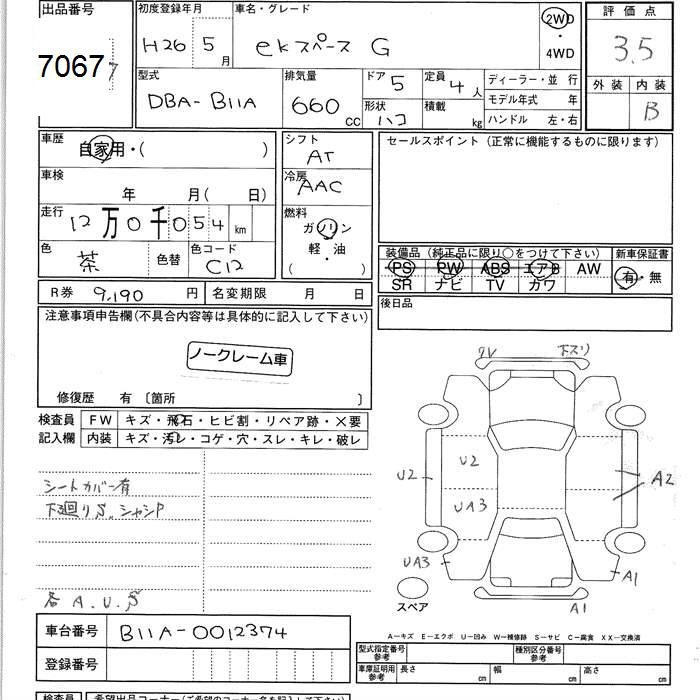 出品番号
7067
初度登録年月 H26年 5月
車名・グレード ekスペース G
2WD・4WD
評価点 3.5
外装 内装 B
型式 DBA-B11A
排気量 660 cc
ドア 5
形状 ハコ
定員 4人
積載 kg
ディーラー・並行
モデル年式 年
ハンドル 左・右
車歴 自家用・( )
車検 年 月( 日)
走行 12万0千054 km
色 茶 色替
色コード C12
シフト AT
冷房 AAC
燃料 ガソリン
軽・油
( )
セールスポイント (正常に機能するものに限ります)
装備品 (純正品に限り○をつけて下さい)
PS PW ABS エアB AW
SR ナビ TV カワ
新車保証書
有・無
後日品
R券 9,190 円
名変期限 月 日
注意事項申告欄(不具合内容等は具体的に記入して下さい)
ノークレーム車
修復歴 有 〔箇所 〕
検査員記入欄
FW キズ・飛石・ヒビ割・リペア跡・×要
内装 キズ・汚レ・コゲ・穴・スレ・キレ・破レ
シートカバー有
下廻りS、シャシP
各 A.U.S
ワレ 下スリ
U2 U2 A2
UA3
UA3 A1
A1
スペア
A―キズ E―エクボ U―凹み W―補修跡 S―サビ C―腐食 XX―交換済
車台番号 B11A-0012374
登録番号
型式指定番号 参考
種別区分番号 参考
車庫証明用 参考 長さ cm 幅 cm 高さ cm
検査員
希望出品コーナー(ご希望のコーナー名を記入して下さい)